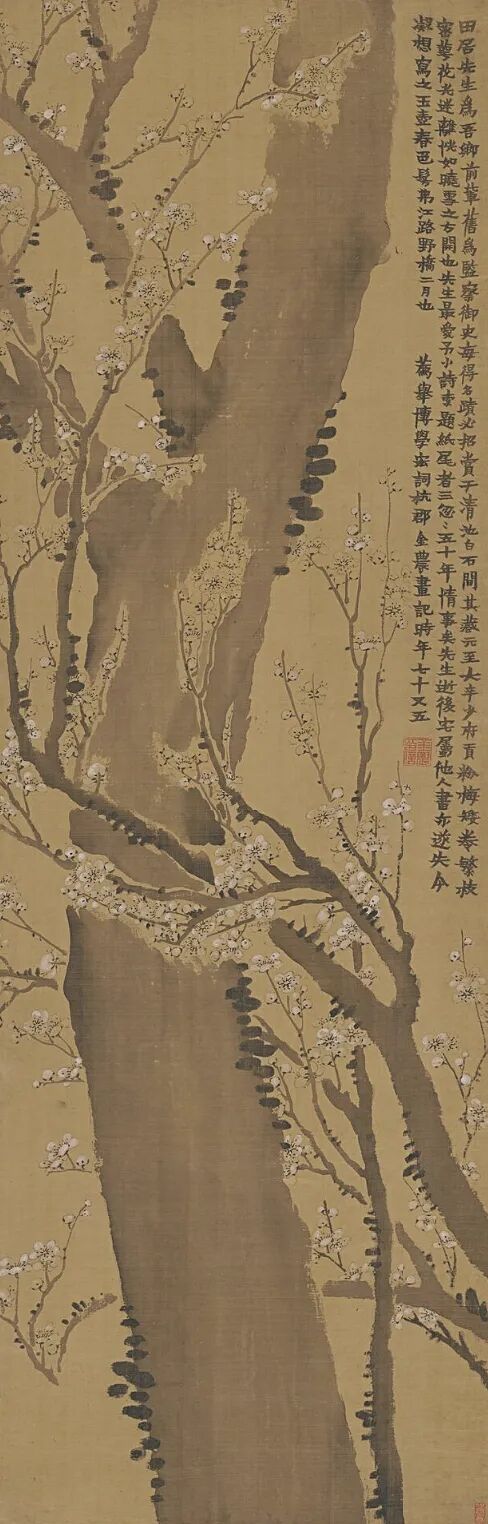 田居先生為吾鄉前輩舊為監察御史每得名蹟必招賞于清池白石間其藏元至大辛少府貢粉梅矮卷繁枝
密萼花光迷離恍如曉雪之方開也先生最愛予小詩索題紙尾者三忽〻五十年情事矣先生逝後宅屬他人畫亦遂失今
凝想寫之玉壺春色髣弗江路野橋二月也 薦舉博學宏詞杭郡金農畫記時年七十又五